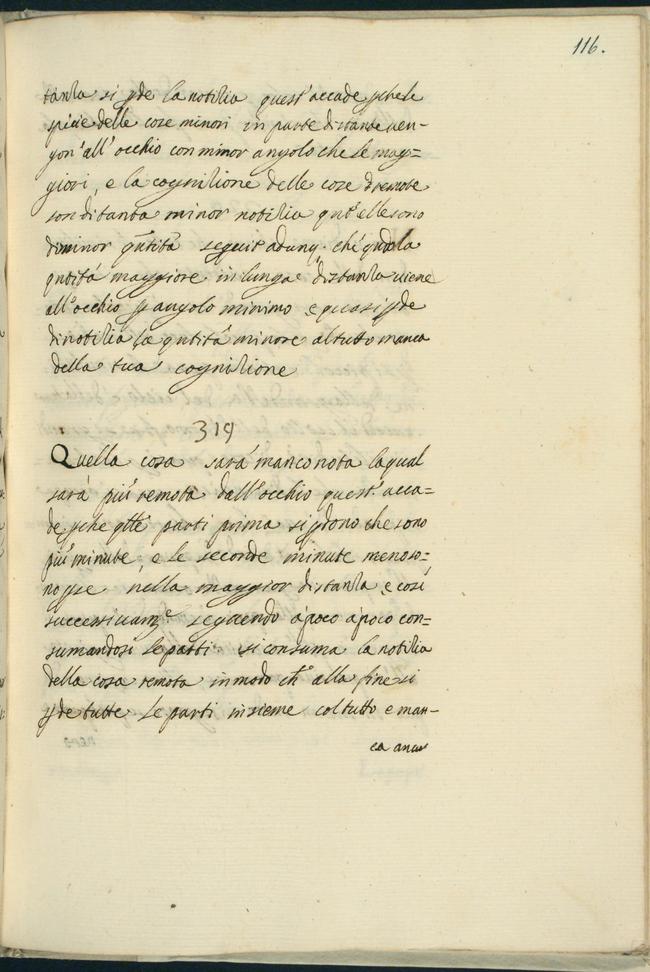 116.
tanza si pde la notitia quest'accade pche le
spicie delle cose minori in parte distante uen-
gon'all'occhio con minor angolo che le mag=
giori, e la cognitione delle cose remote
son di tanta minor notitia qnt'elle sono
di minor qntità seguit'adunq. ché qndo la
qntità maggiore in lunga distanza uiene
all'occhio p angolo minimo e quasi pde
di notitia la qntità minore al tutto manca
della sua cognitione
319
Quella cosa sarà manco nota la qual
sarà piú remota dall'occhio quest'acca=
de pche qlle parti prima si pdono che sono
piú minute, e le seconde minute meno so=
no pse nella maggior distanza e cosi
successiuamte seguendo à poco à poco con=
sumandosi le parti si consuma la notitia
della cosa remota in modo che alla fine si
pde tutte le parti insieme col tutto e man-
ca anco